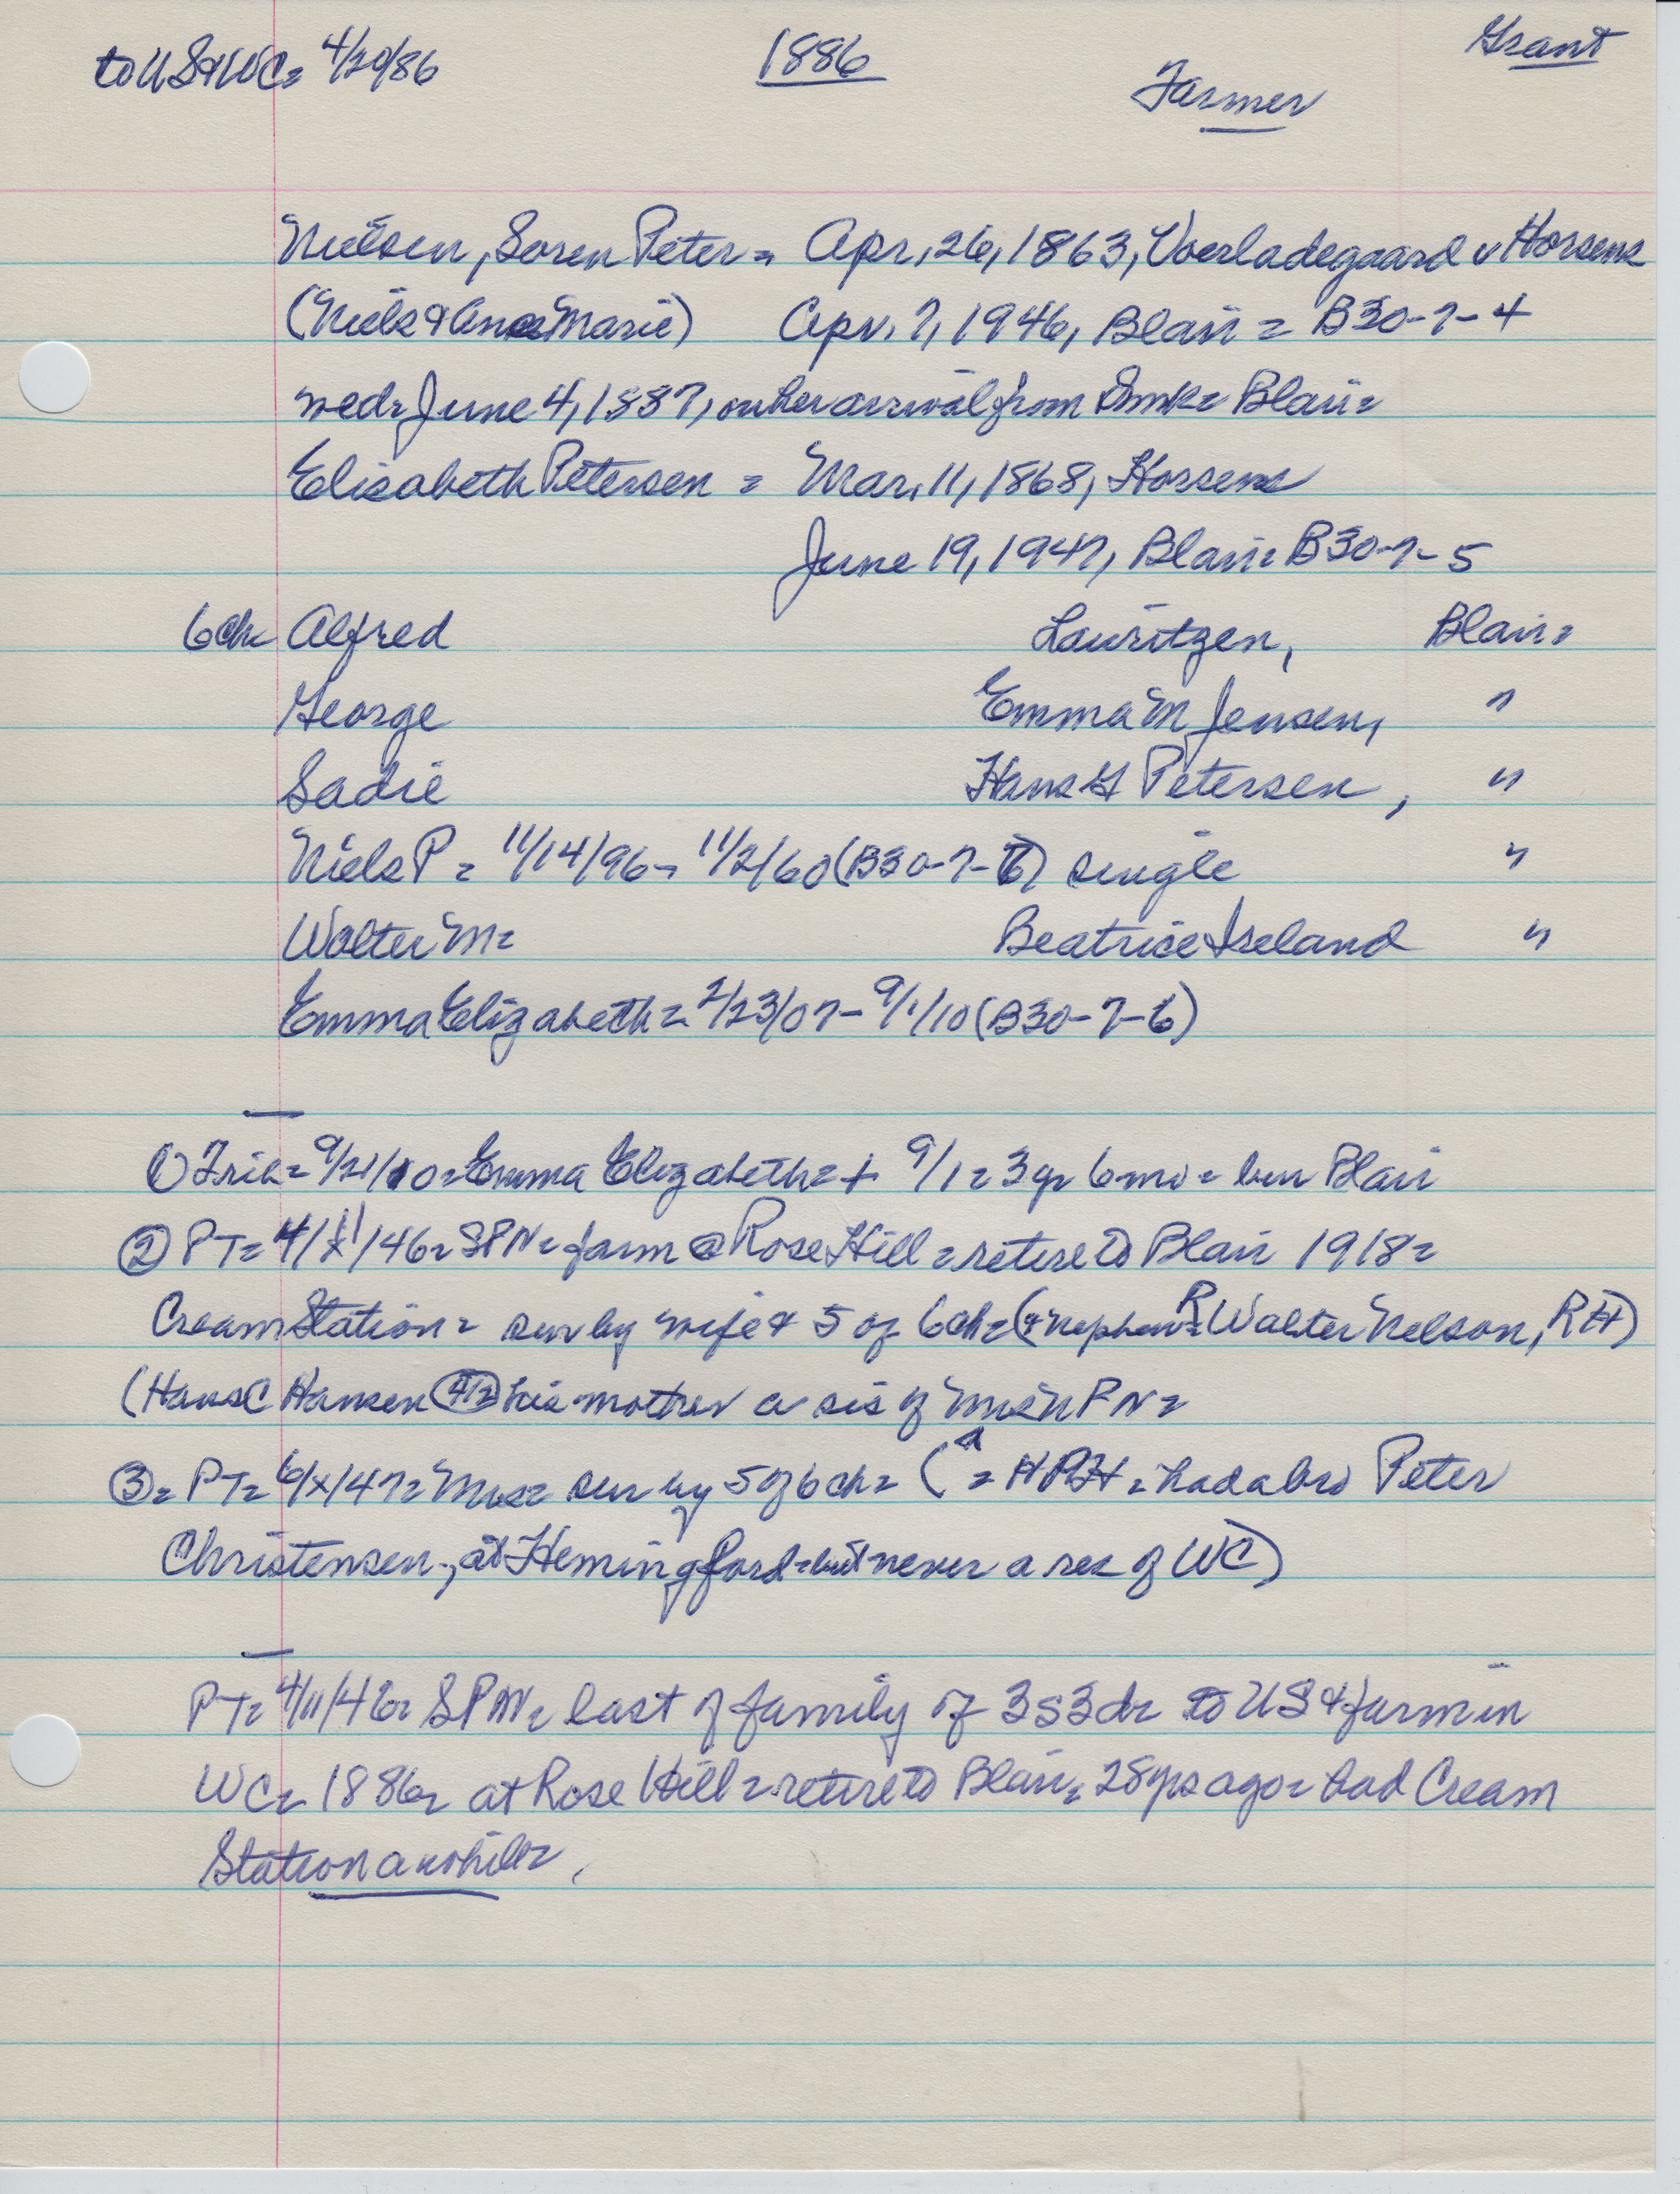 to US & WC= 4/20/86 1886 Farmer Grant
Nielsen, Soren Peter= Apr, 26, 1863, Voerladegaard v Horsens
(Niels & Ane Marie) Apr. 7, 1946, Blair = B30-7-4
wed= June 4, 1887, on her arrival from Dmk= Blair=
Elisabeth Petersen = Mar, 11, 1868, Horsens
June 19, 1947, Blair= B30-7-5
6ch= Alfred Lauritzen, Blair=
George Emma M Jensen, "
Sadie Hans G Petersen, "
Niels P = 11/14/96- 11/2/60 (B30-7-6) single "
Walter M= Beatrice Ireland "
Emma Elizabeth= 2/23/07- 9/1/10 (B30-7-6)
—
① = 9/21/10= Emma Elizabeth= + 9/1= 3 yr 6 mo= Blair
② PT= 4/11/46= SPN= farm @ Rose Hill= retire to Blair 1918=
Cream Station= sur by wife & 5 of 6ch= (& nephew= R Walter Nelson, RH)
(Hans C Hansen = his mother a sis of PN=
③= PT= 6/x/47= Mrs= sur by 5 of 6 ch= ( = = had a bro Peter
Christensen, at Hemingford= but never a res of WC)
—
PT= 4/11/46= SPN= last of family of 3s 3d= to US & farm in
WC= 1886= at Rose Hill= retire to Blair= 28 yrs ago= had Cream
Station a while=